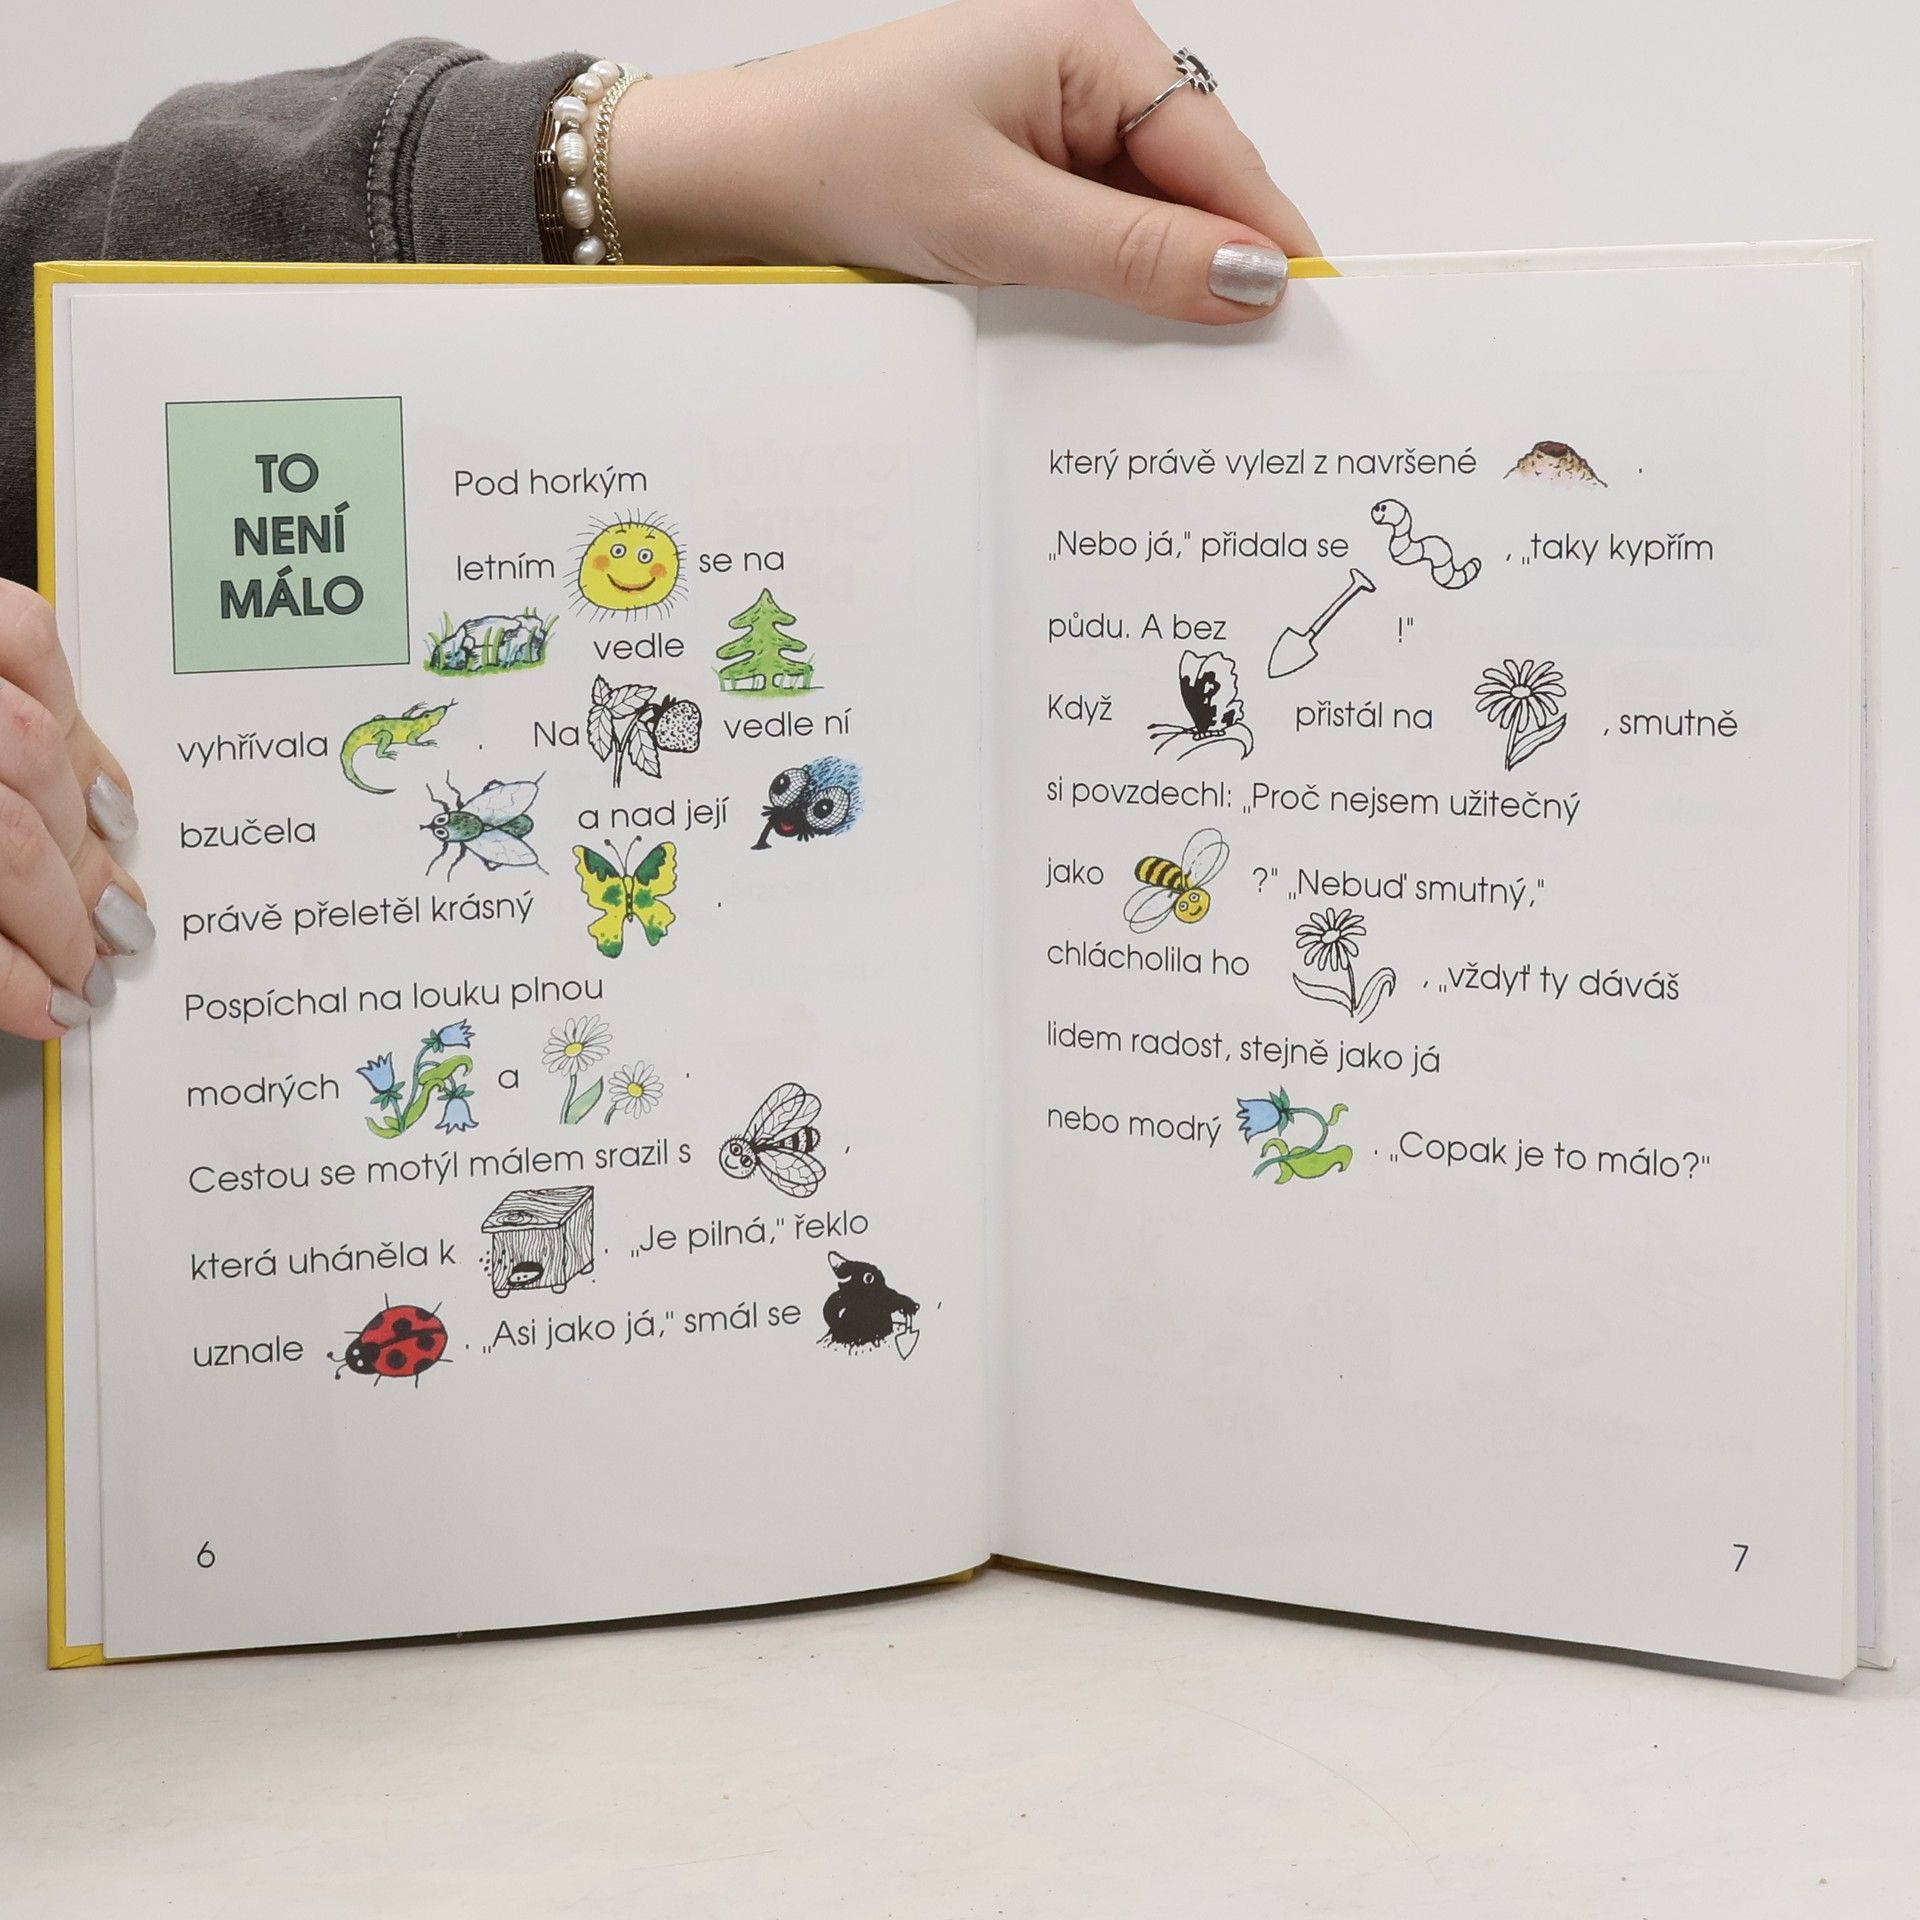 TO
NENÍ
MÁLO
Pod horkým
letním se na
vedle
vyhřívala . Na vedle ní
bzučela a nad její
právě přeletěl krásný .
Pospíchal na louku plnou
modrých a .
Cestou se motýl málem srazil s ,
která uháněla k . „Je pilná," řeklo
uznale . „Asi jako já," smál se ,
6
který právě vylezl z navršené .
„Nebo já," přidala se , „taky kypřím
půdu. A bez !"
Když přistál na , smutně
si povzdechl: „Proč nejsem užitečný
jako ?" „Nebuď smutný,"
chlácholila ho , „vždyť ty dáváš
lidem radost, stejně jako já
nebo modrý . „Copak je to málo?"
7